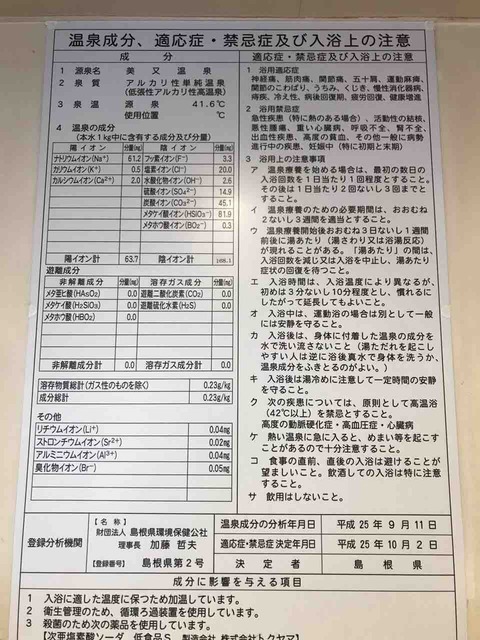 温泉成分、適応症・禁忌症及び入浴上の注意
成分
1 源泉名 美又温泉
2 泉質 アルカリ性単純温泉
(低張性アルカリ性高温泉)
3 泉温 源泉 41.6℃
使用位置 ℃
4 温泉の成分
(本水1kg中に含有する成分及び分量)
陽イオン 分量(mg) 陰イオン 分量(mg)
ナトリウムイオン(Na⁺) 61.2 フッ素イオン(F⁻) 3.3
カリウムイオン(K⁺) 0.5 塩素イオン(Cl⁻) 20.0
カルシウムイオン(Ca²⁺) 2.0 水酸化物イオン(OH⁻) 2.6
硫酸イオン(SO₄²⁻) 14.9
炭酸イオン(CO₃²⁻) 45.1
メタケイ酸イオン(HSiO₃⁻) 81.9
メタホウ酸イオン(BO₂⁻) 0.3
陽イオン計 63.7 陰イオン計 168.1
遊離成分
非解離成分 分量(mg) 溶存ガス成分 分量(mg)
メタ亜ヒ酸(HAsO₂) 0.0 遊離二酸化炭素(CO₂) 0.0
メタケイ酸(H₂SiO₃) 0.0 遊離硫化水素(H₂S) 0.0
メタホウ酸(HBO₂) 0.0
非解離成分計 0.0 溶存ガス成分計 0.0
溶存物質総計(ガス性のものを除く) 0.23g/kg
成分総計 0.23g/kg
その他
リチウムイオン(Li⁺) 0.04mg
ストロンチウムイオン(Sr²⁺) 0.02mg
アルミニウムイオン(Al³⁺) 0.04mg
臭化物イオン(Br⁻) 0.05mg
適応症・禁忌症及び入浴上の注意
1 浴用適応症
神経痛、筋肉痛、関節痛、五十肩、運動麻痺、
関節のこわばり、うちみ、くじき、慢性消化器病、
痔疾、冷え性、病後回復期、疲労回復、健康増進
2 浴用禁忌症
急性疾患(特に熱のある場合)、活動性の結核、
悪性腫瘍、重い心臓病、呼吸不全、腎不全、
出血性疾患、高度の貧血、その他一般に病勢
進行中の疾患、妊娠中(特に初期と末期)
3 浴用上の注意事項
ア 温泉療養を始める場合は、最初の数日の
入浴回数を1日当たり1回程度とすること。
その後は1日当たり2回ないし3回までと
すること。
イ 温泉療養のための必要期間は、おおむね
2週間ないし3週間を適当とすること。
ウ 温泉療養開始後おおむね3日ないし1週間
前後に湯あたり(湯さわり又は浴湯反応)
が現れることがある。「湯あたり」の間は、
入浴回数を減じ又は入浴を中止し、湯あたり
症状の回復を待つこと。
エ 入浴時間は、入浴温度により異なるが、
初めは3分ないし10分程度とし、慣れるに
したがって延長してもよいこと。
オ 入浴中は、運動浴の場合は別として一般
には安静を守ること。
カ 入浴後は、身体に付着した温泉の成分を
水で洗い流さないこと(湯ただれを起こし
やすい人は逆に浴後真水で身体を洗うか、
温泉成分をふきとるのがよい。)
キ 入浴後は湯冷めに注意して一定時間の安静
を守ること。
ク 次の疾患については、原則として高温浴
(42℃以上)を禁忌とすること。
高度の動脈硬化症・高血圧症・心臓病
ケ 熱い温泉に急に入ると、めまい等を起こす
ことがあるので十分注意すること。
コ 食事の直前、直後の入浴は避けることが
望ましいこと。飲酒しての入浴は特に注意
すること。
サ 飲用はしないこと。
登録分析機関
【名称】
財団法人 島根県環境保健公社
理事長 加藤哲夫
【登録番号】 島根県第2号
温泉成分の分析年月日 平成25年9月11日
適応症・禁忌症決定年月日 平成25年10月2日
決定者 島根県
成分に影響を与える項目
1 入浴に適した温度に保つため加温しています。
2 衛生管理のため、循環ろ過装置を使用しています。
3 殺菌のため次の薬品を使用しています。
【次亜塩素酸ソーダ 低食品S 製造会社 株式会社トクヤマ】